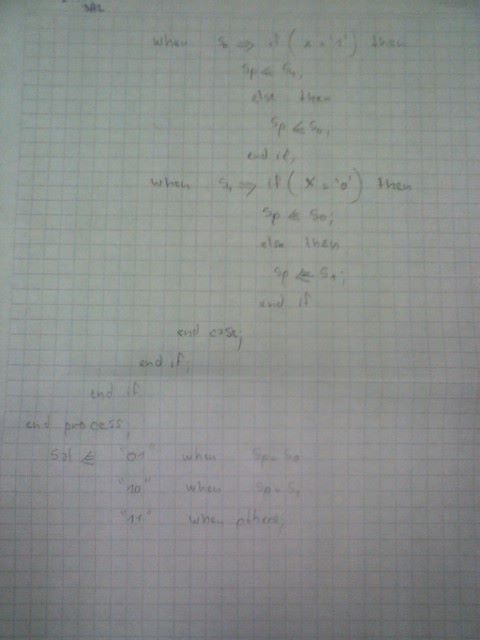 when S0 => if ( x = '1' ) then
Sp <= S1;
else then
Sp <= S0;
end if;
when S1 => if ( x = '0' ) then
Sp <= S0;
else then
Sp <= S1;
end if
end case;
end if;
end if
end process;
Sal <= "01" when Sp = S0
"10" when Sp = S1
"11" when others;